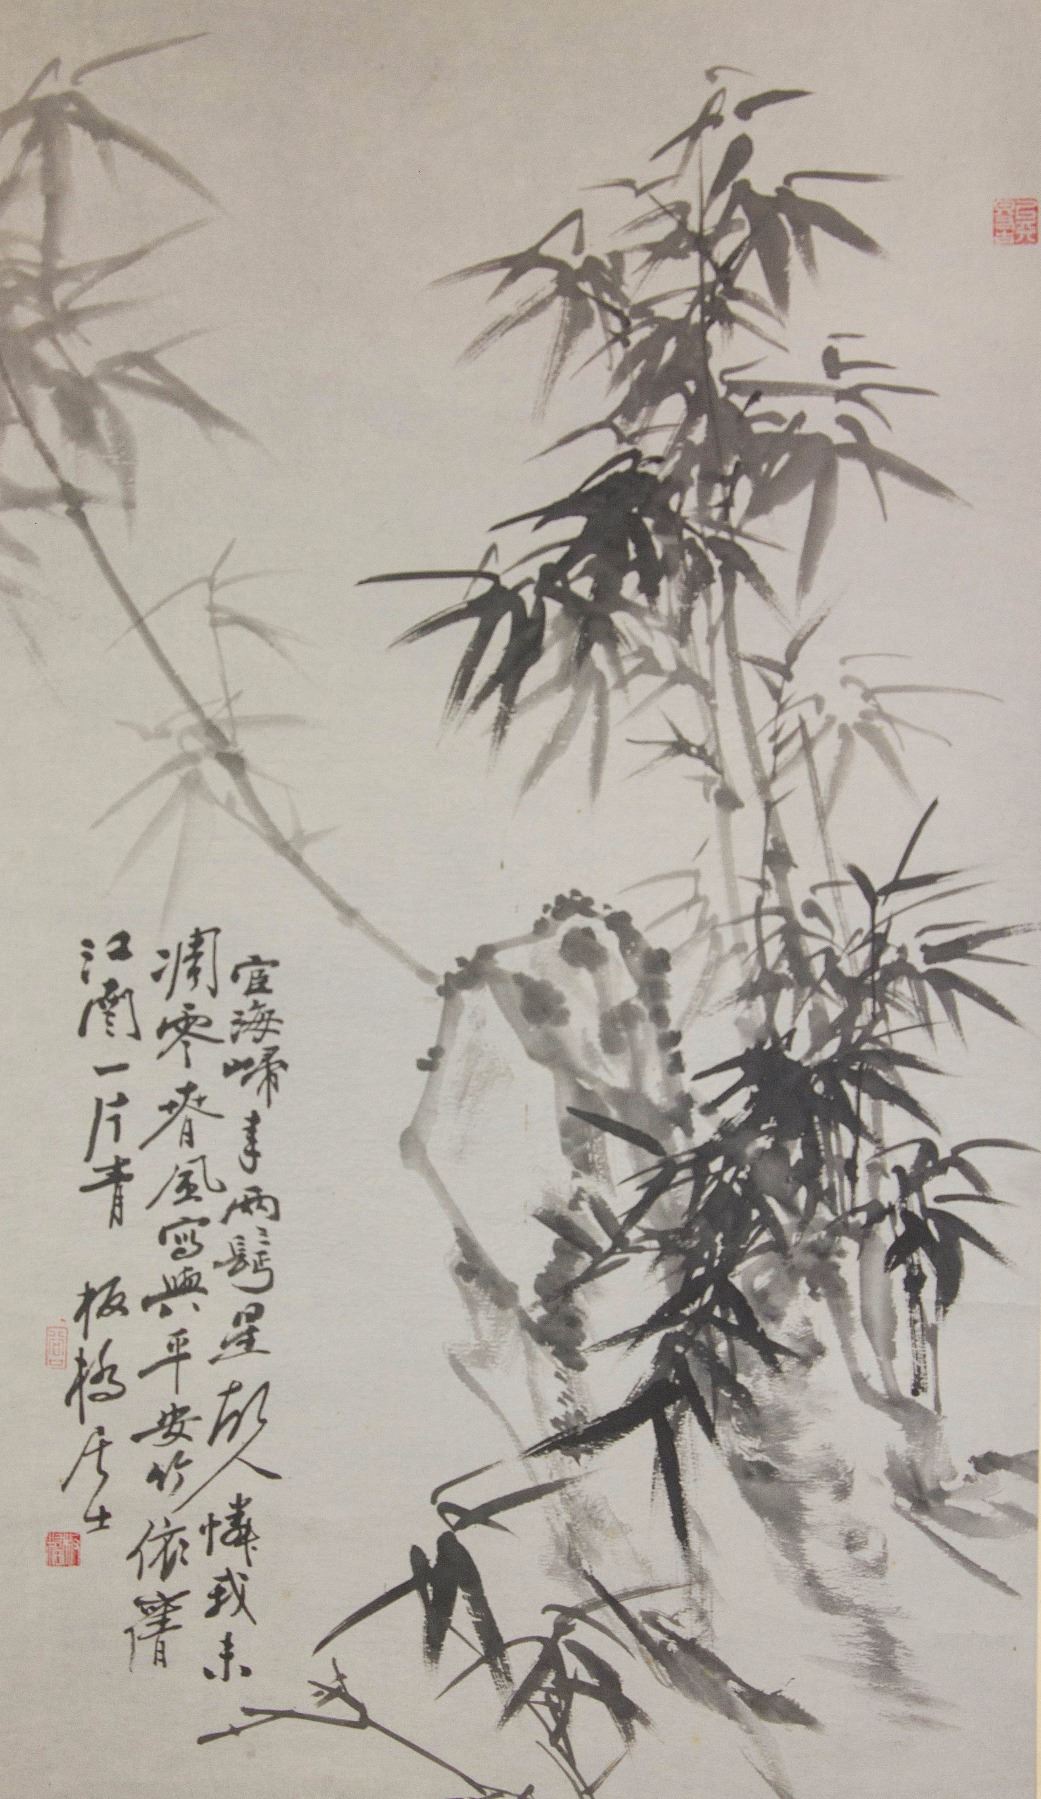 宦海歸来兩鬢星故人憐我未
凋零春風寫與平安竹依舊
江南一片青 板橋居士